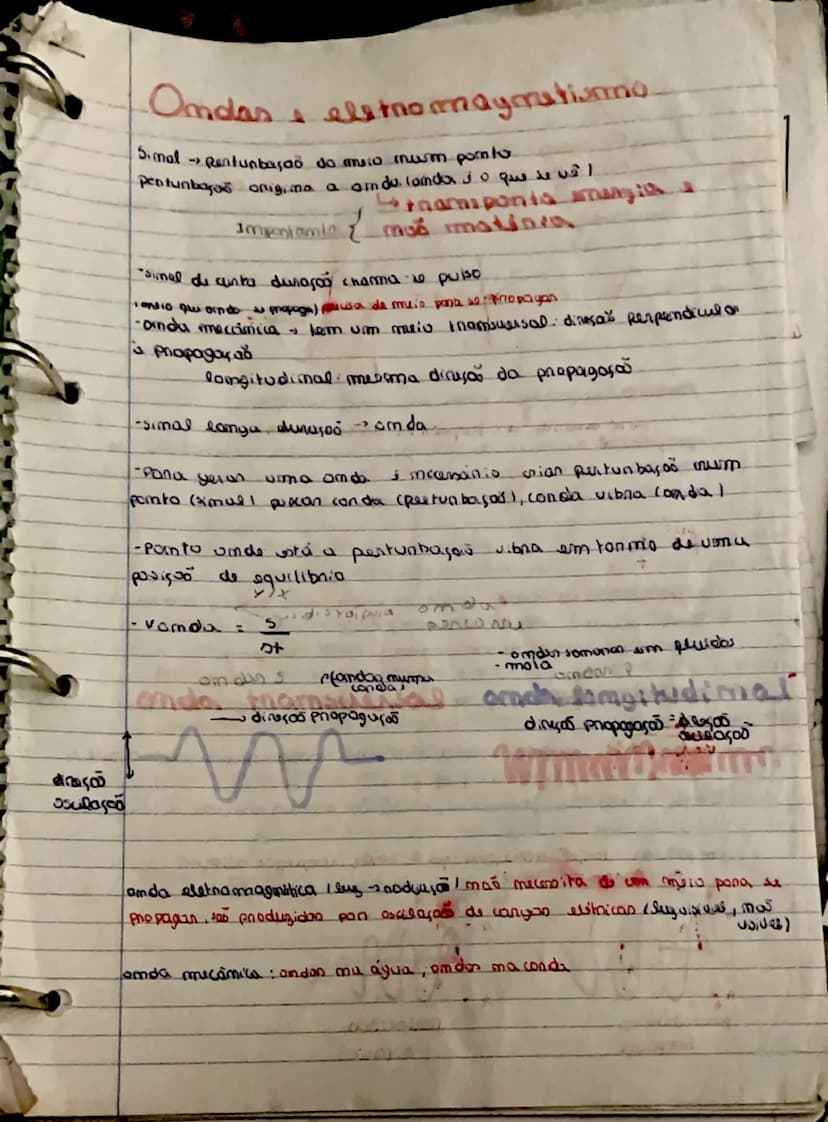 Ondas e eletromagnetismo
Sinal → perturbação do meio num ponto
perturbação origina a onda (onda é o que se vê)
↳ transporta energia e
Importante { não matéria
-sinal de curta duração chama-se pulso
(meio que onda se propaga) precisa de meio para se propagar
-onda mecânica → tem um meio transversal: direção perpendicular
à propagação
longitudinal: mesma direção da propagação
-sinal longa duração → onda
-Para gerar uma onda é necessário criar perturbação num
ponto (sinal) puxar corda (perturbação), corda vibra (onda)
-Ponto onde está a perturbação vibra em torno de uma
posição de equilíbrio
y/x
distância onda
- Vonda = s percorre
Δt
- ondas sonoras em fluidos
- mola
ondas s (ondas numa corda) ondas P
onda transversal onda longitudinal
→ direção propagação direção propagação = direção
oscilação
direção
oscilação
onda eletromagnética (luz → radiação) não necessita de um meio para se
propagar, são produzidas por oscilação de cargas elétricas (luz visível, raios
uv)
onda mecânica: ondas na água, ondas na corda